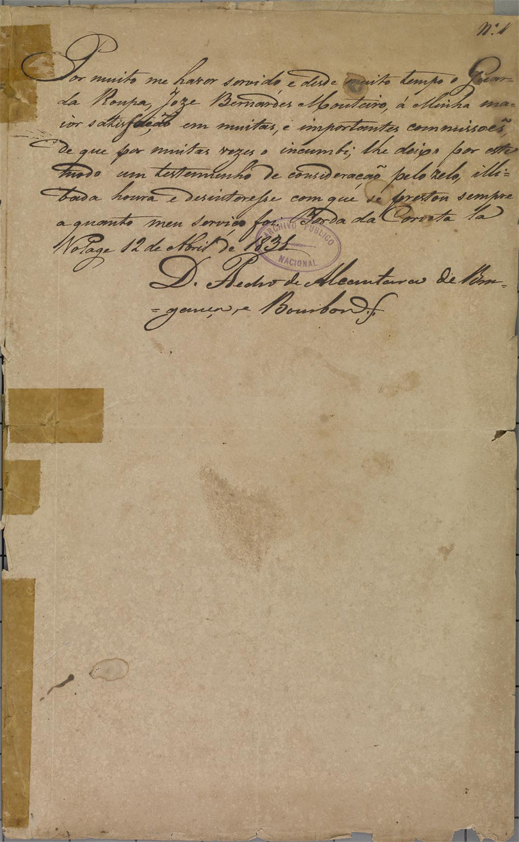 Nº 1
Por muito me haver servido, e desde muito tempo o Guar-
da Roupa, Joze Bernardes Monteiro, á Minha ma-
ior satisfação em muitas, e importantes commissoẽs,
de que por muitas vezes o incumbi; lhe deixo por este
modo um testemunho de consideração pelo zelo, illi-
bada honra e desinteresse com que se prestou sempre
a quanto meu serviço foi. Bordo da Corveta la
Volage 12 de Abril de 1831
ARCHIVO PUBLICO
NACIONAL
D. Pedro de Alcantara de Bra-
=gança, e Bourbon